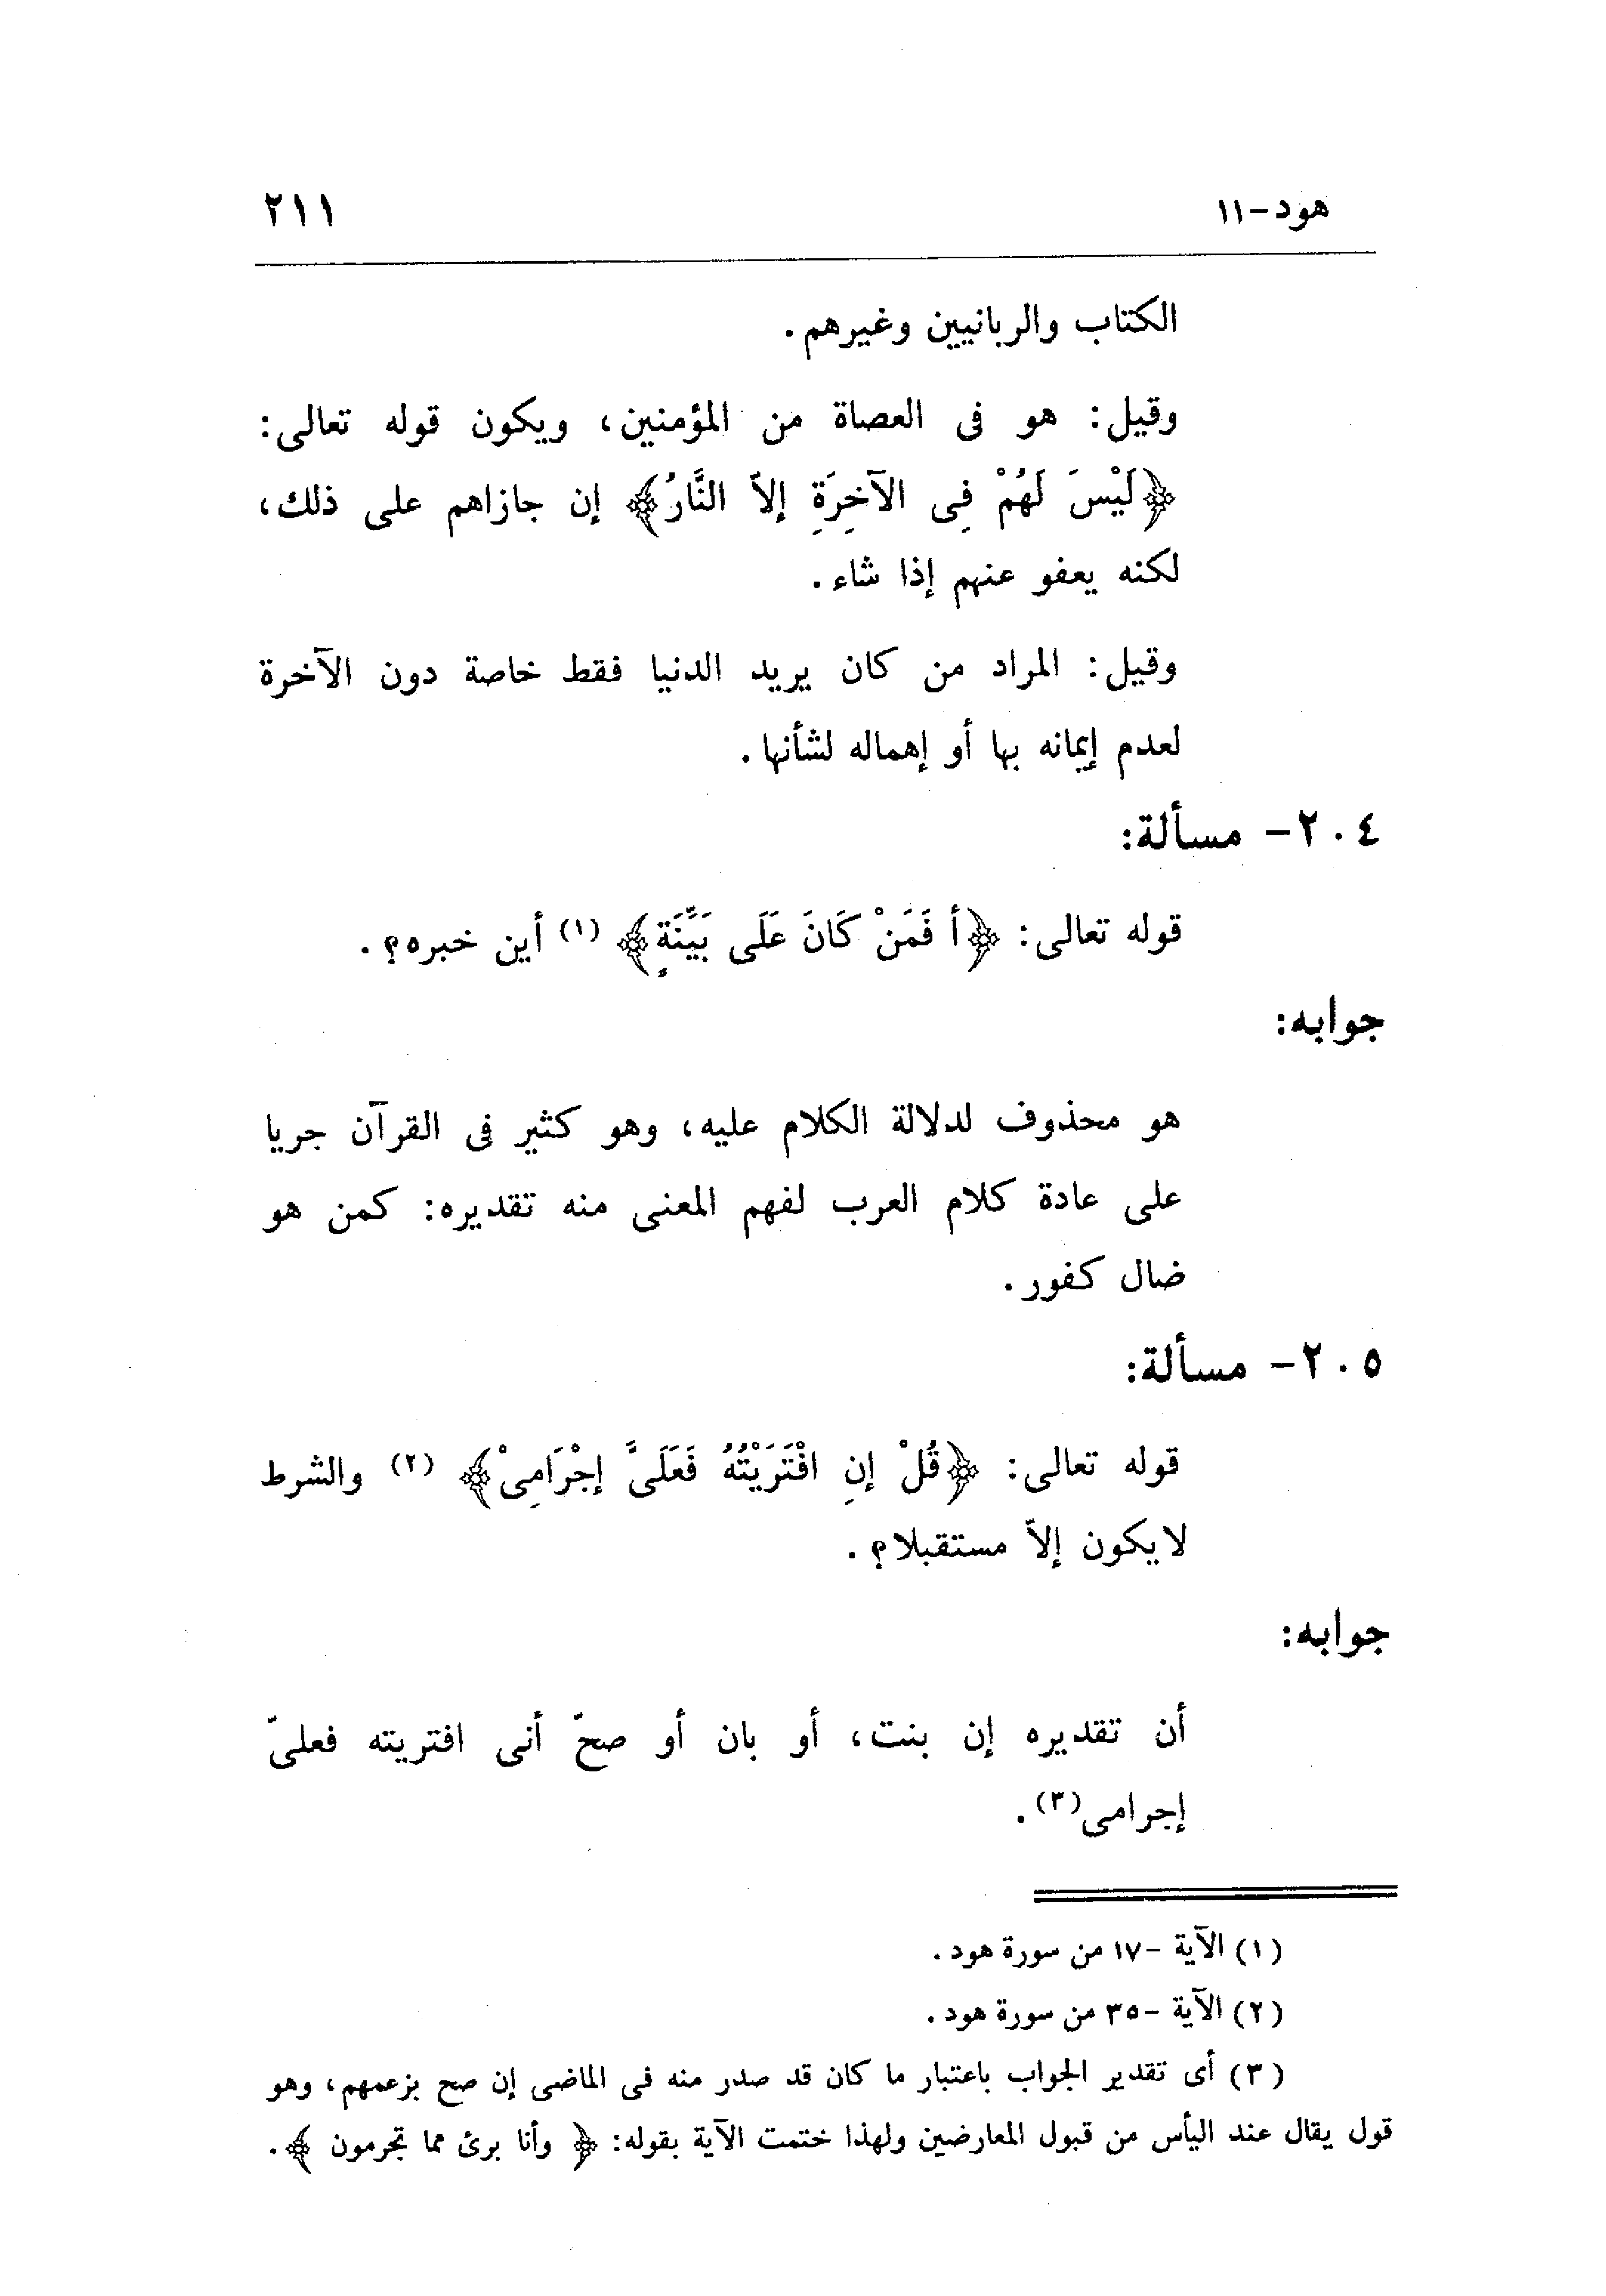 هود-١١
٢١١
الكتاب والربانيين وغيرهم.
وقيل: هو فى العصاة من المؤمنين، ويكون قوله تعالى:
﴿لَيْسَ لَهُمْ فِى الآخِرَةِ إلاّ النَّارُ﴾ إن جازاهم على ذلك،
لكنه يعفو عنهم إذا شاء.
وقيل: المراد من كان يريد الدنيا فقط خاصة دون الآخرة
لعدم إيمانه بها أو إهماله لشأنها.
٢٠٤- مسألة:
قوله تعالى: ﴿أ فَمَنْ كَانَ عَلَى بَيِّنَةٍ﴾ (١) أين خبره؟.
جوابه:
هو محذوف لدلالة الكلام عليه، وهو كثير فى القرآن جريا
على عادة كلام العرب لفهم المعنى منه تقديره: كمن هو
ضال كفور.
٢٠٥- مسألة:
قوله تعالى: ﴿قُلْ إنِ افْتَرَيْتُهُ فَعَلَىَّ إجْرَامِىْ﴾ (٢) والشرط
لايكون إلاّ مستقبلا؟.
جوابه:
أن تقديره إن بنت، أو بان أو صحّ أنى افتريته فعلىّ
إجرامى(٣).
(١) الآية -١٧ من سورة هود.
(٢) الآية -٣٥ من سورة هود.
(٣) أى تقدير الجواب باعتبار ما كان قد صدر منه فى الماضى إن صح بزعمهم، وهو
قول يقال عند اليأس من قبول المعارضين ولهذا ختمت الآية بقوله: ﴿ وأنا برئ مما تجرمون ﴾.